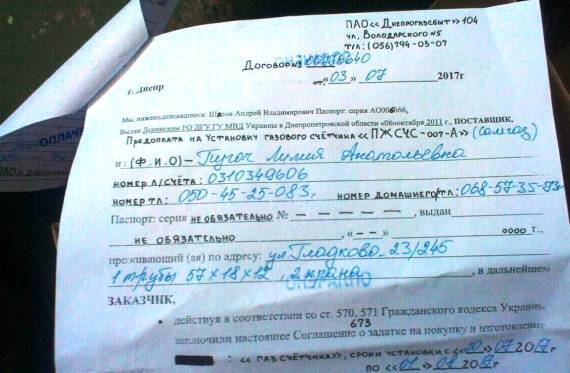 ПАО «Днепрогазсбыт» 104
ул. Володарского №5
т/л: (056)794-03-07
Договор №
от «03» 07 2017г
г. Днепр
Мы, нижеподписавшиеся: Андрей Владимирович Паспорт: серия
Выдан РО ДГУ ГУ МВД Украины в Днепропетровской области «06»октября 2011 г., ПОСТАВЩИК,
Предоплата на установку газового счётчика «ПЖСЧС-007-А» (Самгаз)
и: (Ф.И.О)- Пугач Лилия Анатольевна
номер л/счёта: 0310349606
номер тл: 050-45-25-083, номер домашнего/тл: 068-57-35-
Паспорт: серия не обязательно № – – – – –, выдан
не обязательно, «– –» 0000 г.,
проживающий (ая) по адресу: ул. Гладково 23/245
1 трубы 57×18×12, 2 крана, в дальнейшем
ОПЛАЧЕНО
ЗАКАЗЧИК,
• действуя в соответствии со ст. 570, 571 Гражданского кодекса Украины
673
заключили настоящее Соглашение о задатке на покупку и изготовление
: «газ счётчика», сроки установки с «20» 07 2017
по «01» 08 2017